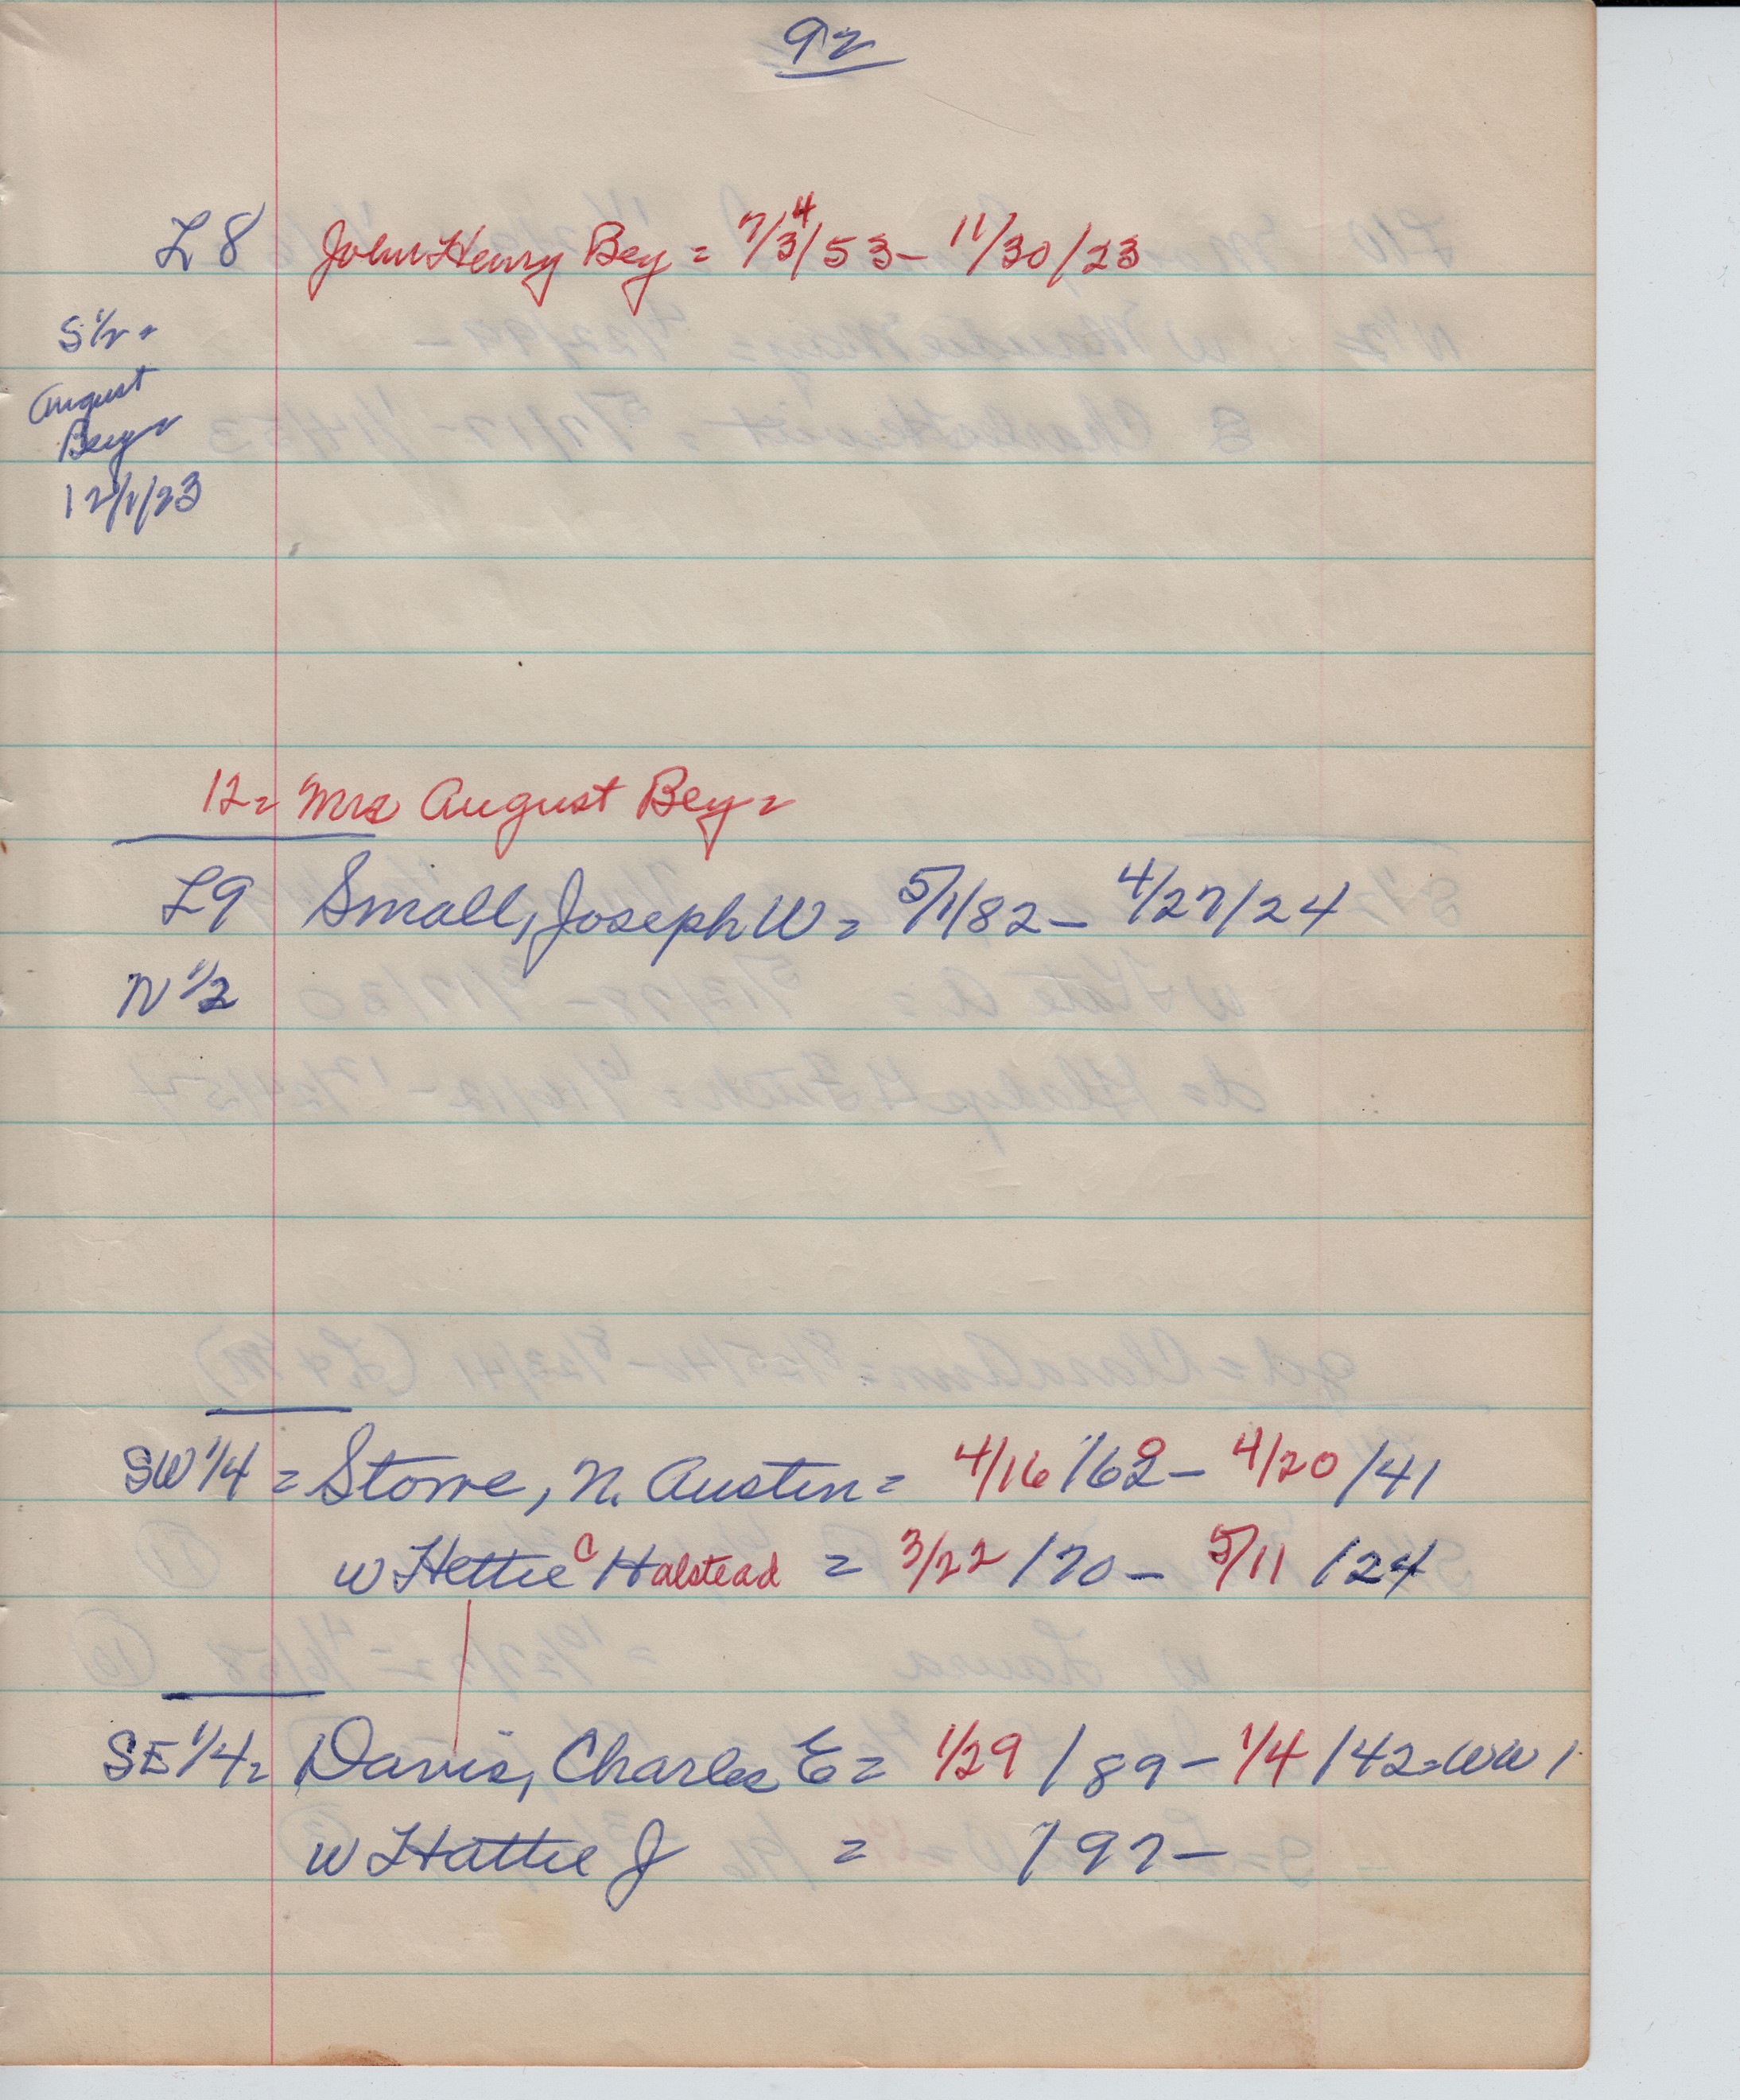 92
L8 John Henry Bey = 7/3/53 - 11/30/23
4
S 1/2 =
August
Bey =
12/1/23
12 = Mrs August Bey =
L9 Small, Joseph W = 5/1/82 - 4/27/24
N 1/2
SW 1/4 = Stowe, N. Austin = 4/16/62 - 4/20/41
w Hettie C Halstead = 3/22/70 - 5/11/24
SE 1/4 = Davis, Charles E = 1/29/89 - 1/4/42 = WW1
w Hattie J = /97 -